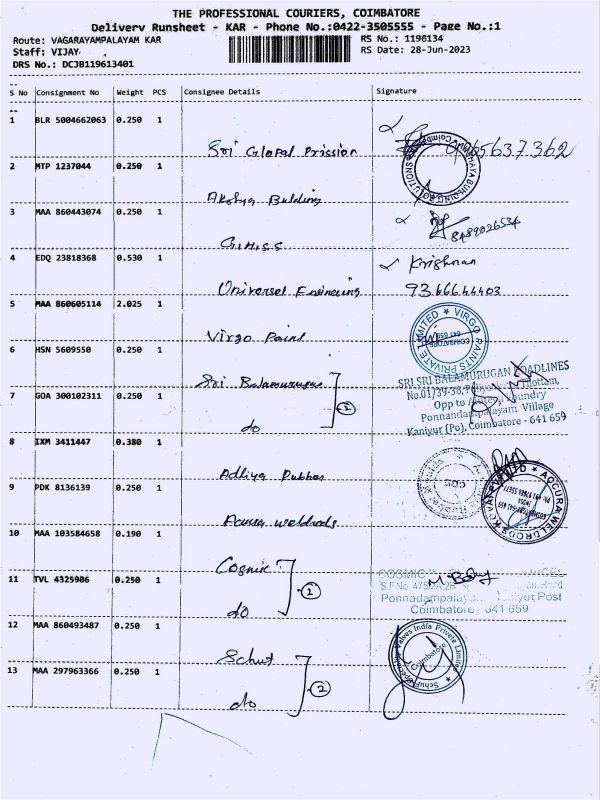 THE PROFESSIONAL COURIERS, COIMBATORE
Delivery Runsheet - KAR - Phone No.:0422-3505555 - Page No.:1
Route: VAGARAYAMPALAYAM KAR
RS No.: 1196134
Staff: VIJAY
RS Date: 28-Jun-2023
DRS No.: DCJB119613401
S No Consignment No Weight PCS Consignee Details Signature
1 BLR 5004662063 0.250 1
Sri Glopal Prission
2 MTP 1237044 0.250 1
Akshya Bulding
3 MAA 860443074 0.250 1
G.H.S.S
8489026534
4 EDQ 23818368 0.530 1
Krishnan
Universel Engineering 9366644403
5 MAA 860605114 2.025 1
Virgo Paint
VIRGO PAINTS PRIVATE LIMITED
COIMBATORE
641 659
6 HSN 5609550 0.250 1
Sri Balamurugan
SRI SRI BALAMURUGAN ROADLINES
No.01/39-38, Thottam,
7 GOA 300102311 0.250 1
do
2
Opp to Foundry
Ponnandampalayam Village
Kaniyur (Po), Coimbatore - 641 659
8 IXM 3411447 0.380 1
Adhya Pubhas
9 PDK 8136139 0.250 1
Accura weldrods
ACCURA WELDRODS KOVAI PVT LTD
10 MAA 103584658 0.190 1
Cosmic
2
COSMIC
S.F.No 475/2A,2B
11 TVL 4325906 0.250 1
do
Ponnadampalay Post
Coimbatore 641 659
12 MAA 860493487 0.250 1
Schuf
Schuf Speciality Valves India Private Limited
Coimbatore
13 MAA 297963366 0.250 1
do
2